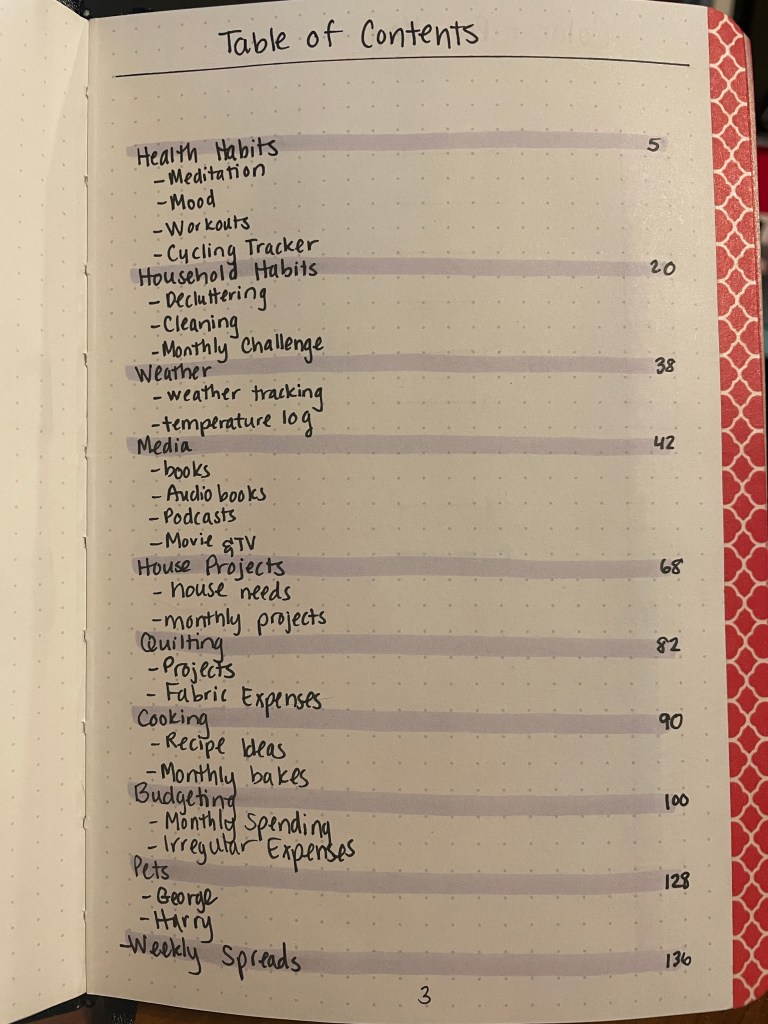 Table of Contents
Health Habits 5
-Meditation
-Mood
-Workouts
-Cycling Tracker
Household Habits 20
-Decluttering
-Cleaning
-Monthly Challenge
Weather 38
-weather tracking
-temperature log
Media 42
-books
-Audiobooks
-Podcasts
-Movie &TV
House Projects 68
- house needs
-monthly projects
Quilting 82
-Projects
- Fabric Expenses
Cooking 90
-Recipe Ideas
-Monthly bakes
Budgeting 100
- Monthly Spending
- Irregular Expenses
Pets 128
-George
-Harry
-Weekly Spreads 136
3